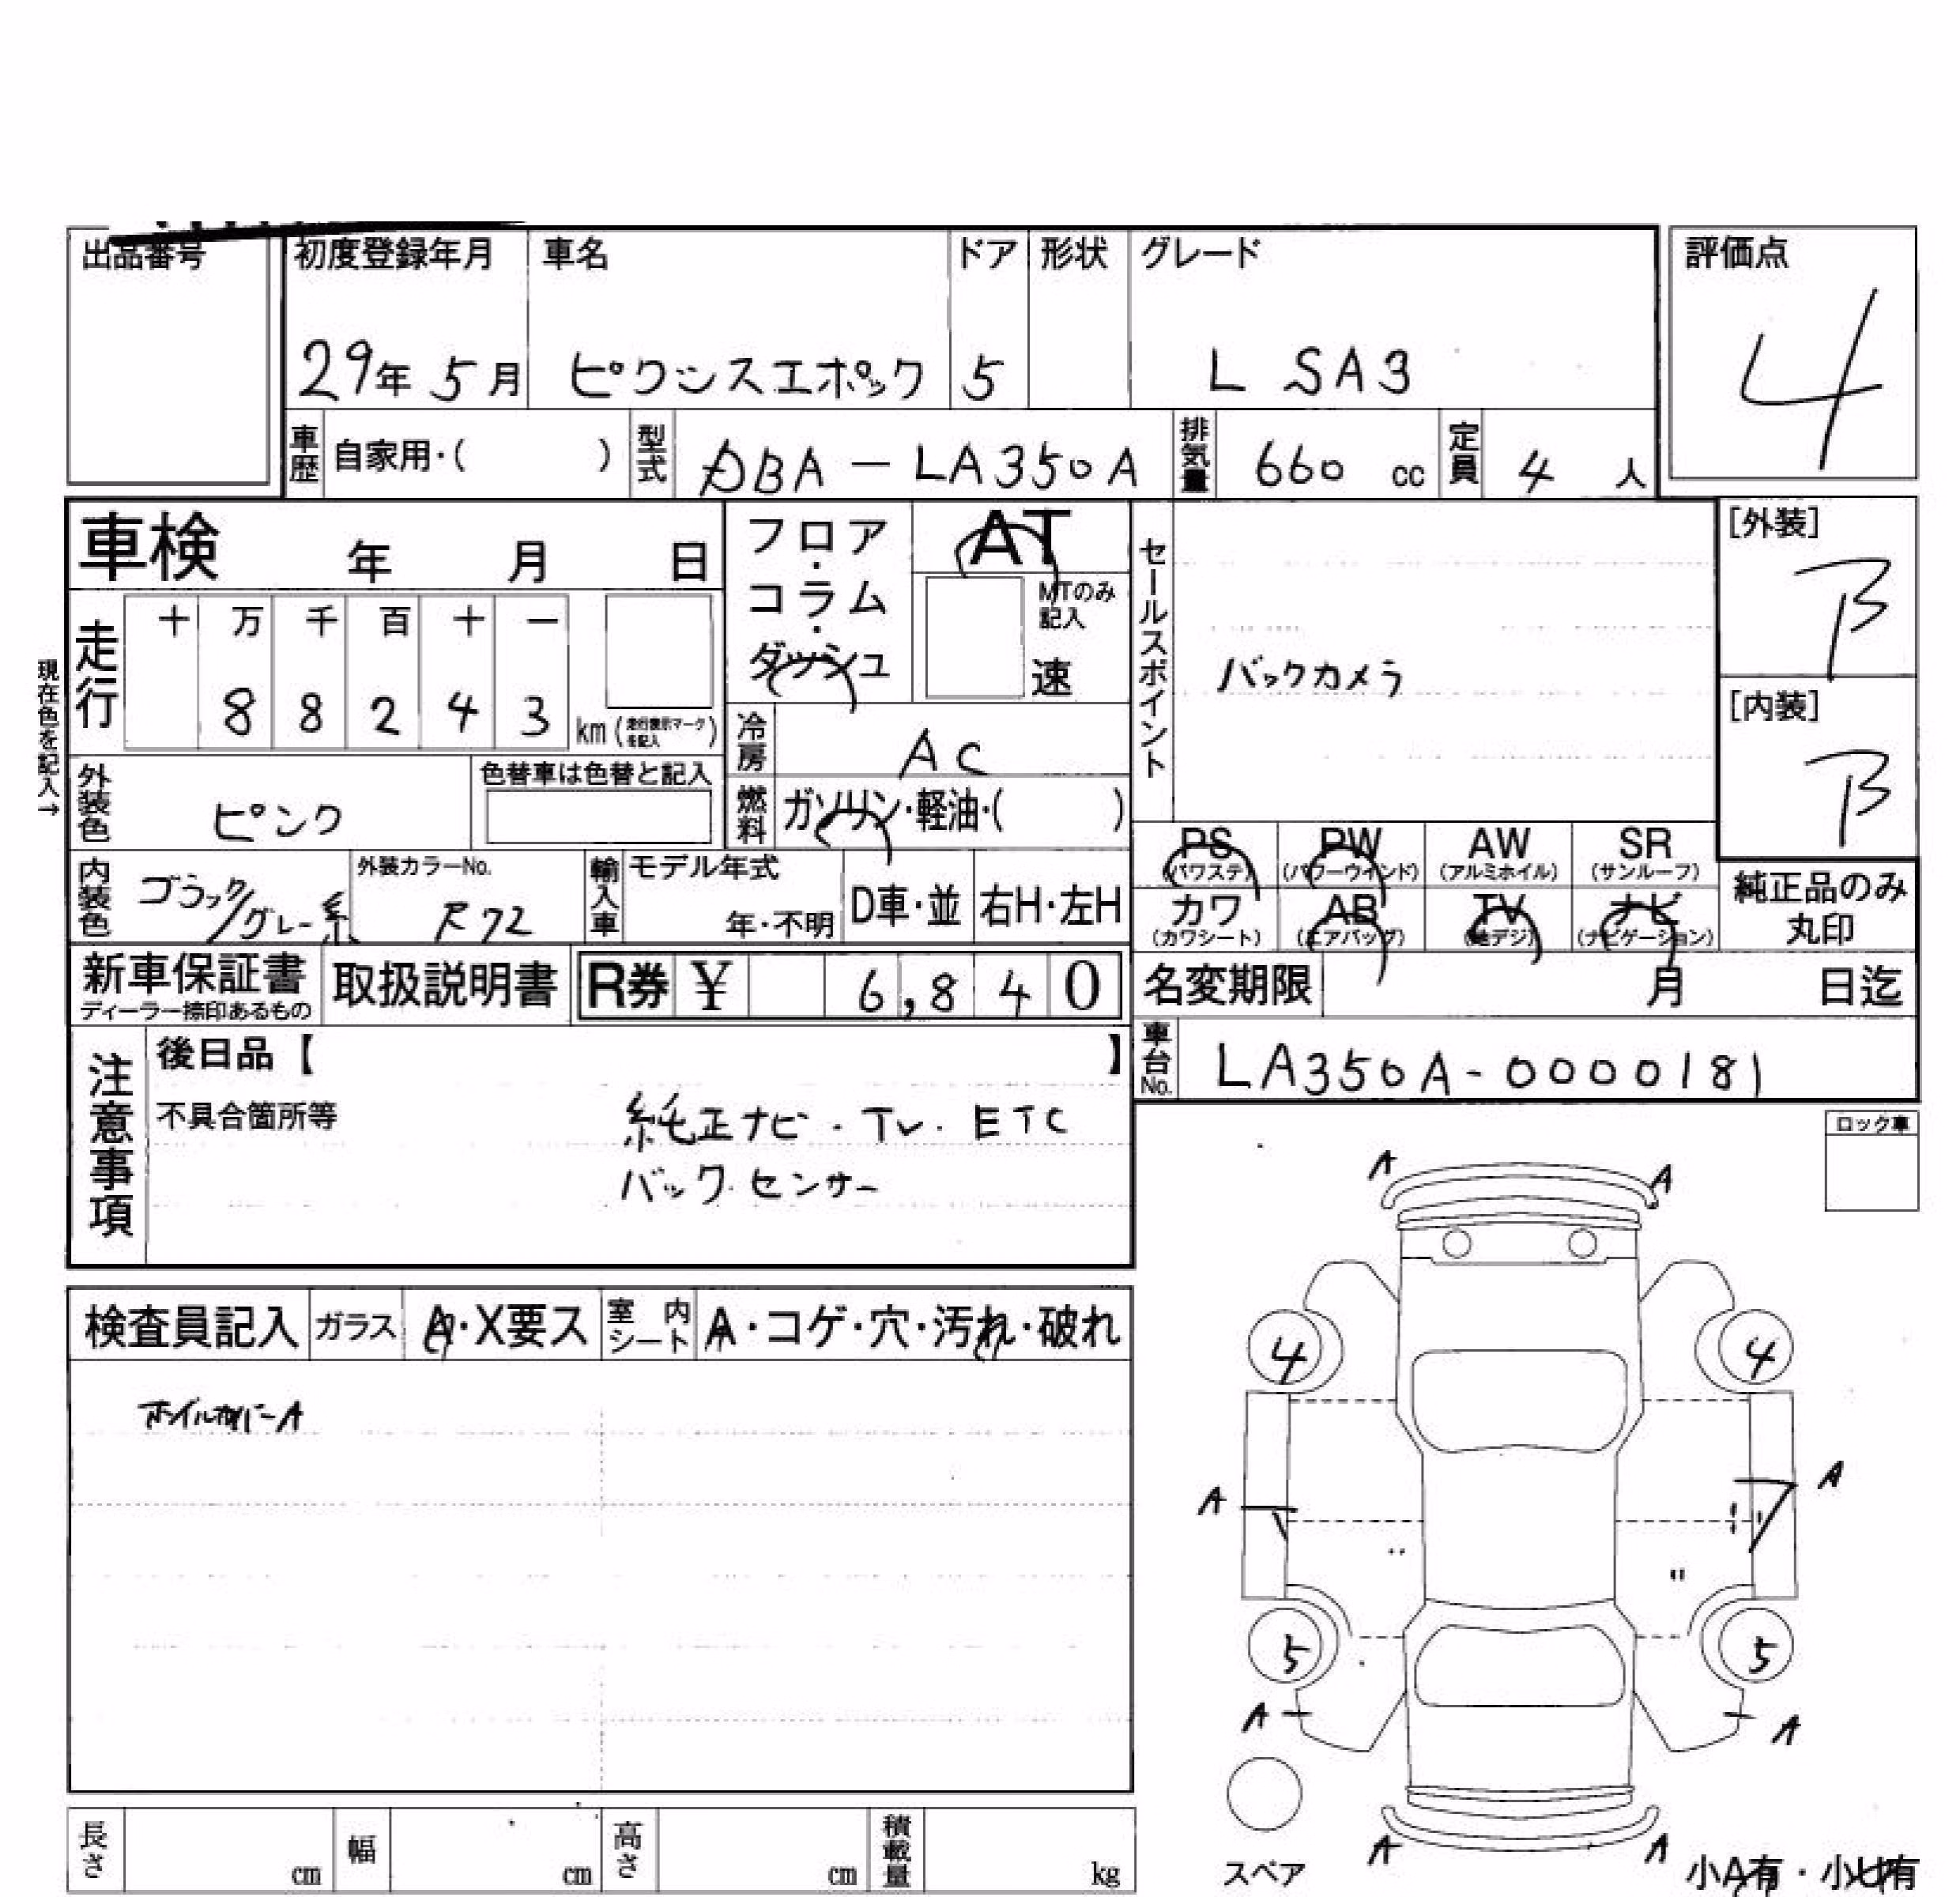 出品番号 初度登録年月 車名 ドア 形状 グレード 評価点
29年 5月 ピクシスエポック 5 L SA3 4
車歴 自家用・( ) 型式 DBA-LA350A 排気量 660 cc 定員 4 人
車検 年 月 日 フロア・コラム・ダッシュ AT セールスポイント [外装]
MTのみ記入 B
速
走行 十 万 千 百 十 一
8 8 2 4 3 km (走行表示マークを記入)
バックカメラ
[内装]
B
現在色を記入→
冷房 AC
外装色 ピンク 色替車は色替と記入 燃料 ガソリン・軽油・( )
PS (パワステ) PW (パワーウインド) AW (アルミホイル) SR (サンルーフ)
内装色 ブラック/グレー系 外装カラーNo. R72 輸入車 モデル年式 年・不明 D車・並 右H・左H
カワ (カワシート) AB (エアバッグ) TV (地デジ) ナビ (ナビゲーション) 純正品のみ丸印
新車保証書 ディーラー捺印あるもの 取扱説明書 R券 ¥ 6,840 名変期限 月 日迄
注意事項 後日品【 】 車台No. LA350A-0000181
不具合箇所等 純正ナビ・TV・ETC
バックセンサー
ロック車
A A
検査員記入 ガラス A・X要ス 室内シート A・コゲ・穴・汚れ・破れ
4 4
ホイルカバーA
A A
5 5
A A
A A
長さ cm 幅 cm 高さ cm 積載量 kg スペア 小A有・小U有